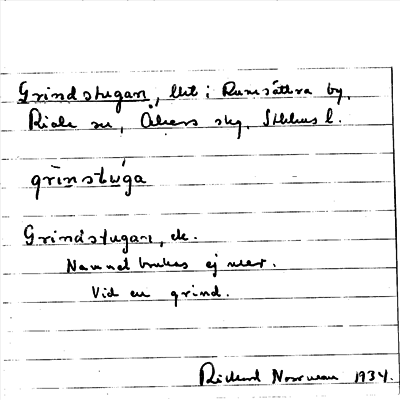 Grindstugan, lht i Rumsättra by,
Riala sn, Åkers skg, Sthlms l.
grinstuga
Grindstugan, ck.
Namnet brukas ej mer.
Vid en grind.
Richard Norrman 1934.